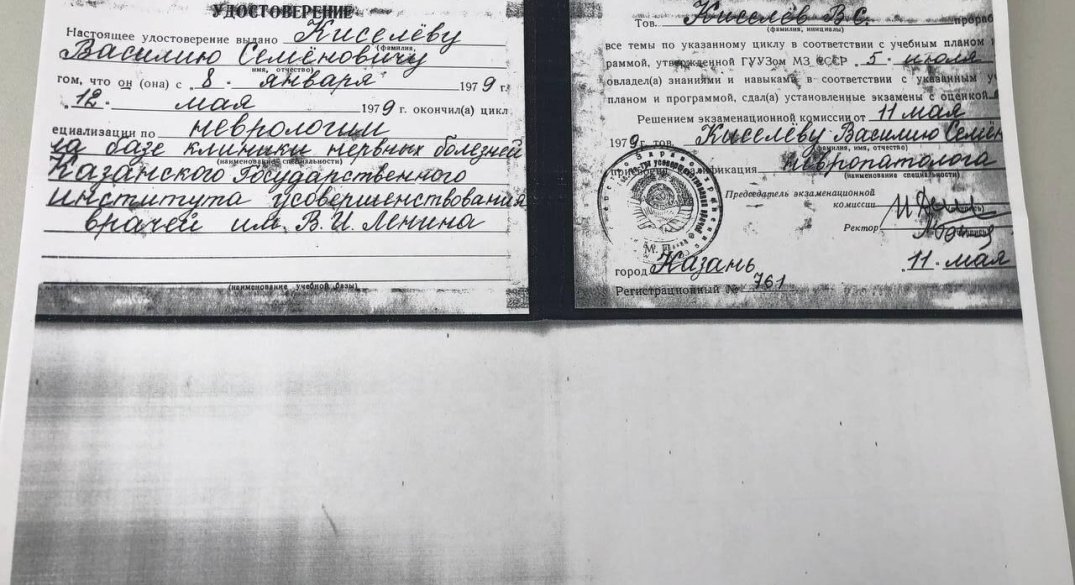 УДОСТОВЕРЕНИЕ
Настоящее удостоверение выдано Киселёву
(фамилия,
Василию Семёновичу
имя, отчество)
том, что он (она) с 8 - января 1979 г.
12 - мая 1979 г. окончил(а) цикл
ециализации по неврологии
на базе клиники нервных болезней
(наименование специальности)
Казанского Государственного
института усовершенствован
врачей им. В. И. Ленина
(наименование учебной базы)
Тов. Киселёв В.С. прораб
(фамилия, инициалы)
все темы по указанному циклу в соответствии с учебным планом и
раммой, утвержденной ГУУЗом МЗ СССР 5 - июля
овладел(а) знаниями и навыками в соответствии с указанным у
планом и программой, сдал(а) установленные экзамены с оценкой
Решением экзаменационной комиссии от 11 мая
1979 г. тов. Киселёву Василию Семён
(фамилия, имя, отчество)
квалификация невропатолога
(наименование специальности)
Председатель экзаменационной
комиссии
Ректор
М.
город Казань 11 - мая
Регистрационный № 761